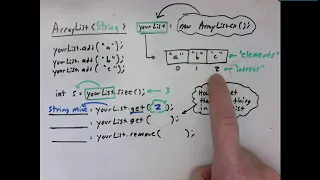 ArrayList<String> yourList = new ArrayList<>();
yourList.add( "a" );
yourList.add( "b" );
yourList.add( "c" );
"a" "b" "c" ← "elements"
0 1 2 ← "indexes"
int s = yourList.size(); ← 3
String mine = yourList.get( 2 );
= yourList.get( );
= yourList.remove( );
get
the
thing
in
list